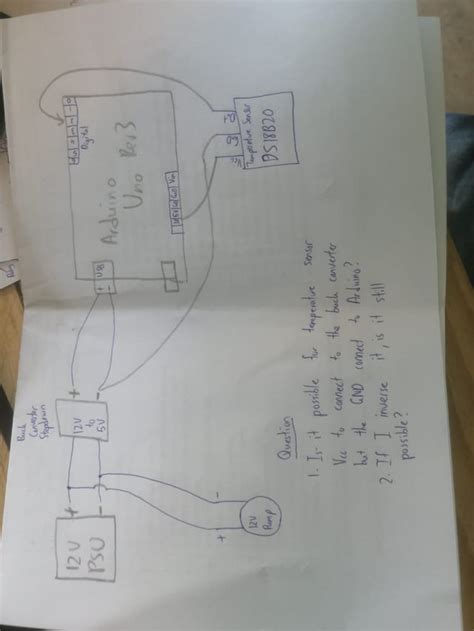 12V
PSU
Buck
Converter
Stepdown
+
-
12V
to
5V
+
-
12V
Pump
+
-
USB
+
-
Arduino
Uno
Rev3
Digital
Vin
Temperature Sensor
DS18B20
Question
1. Is it possible for temperature sensor
Vcc to connect to the buck converter
but the GND connect to Arduino?
2. If I inverse it, is it still
possible?